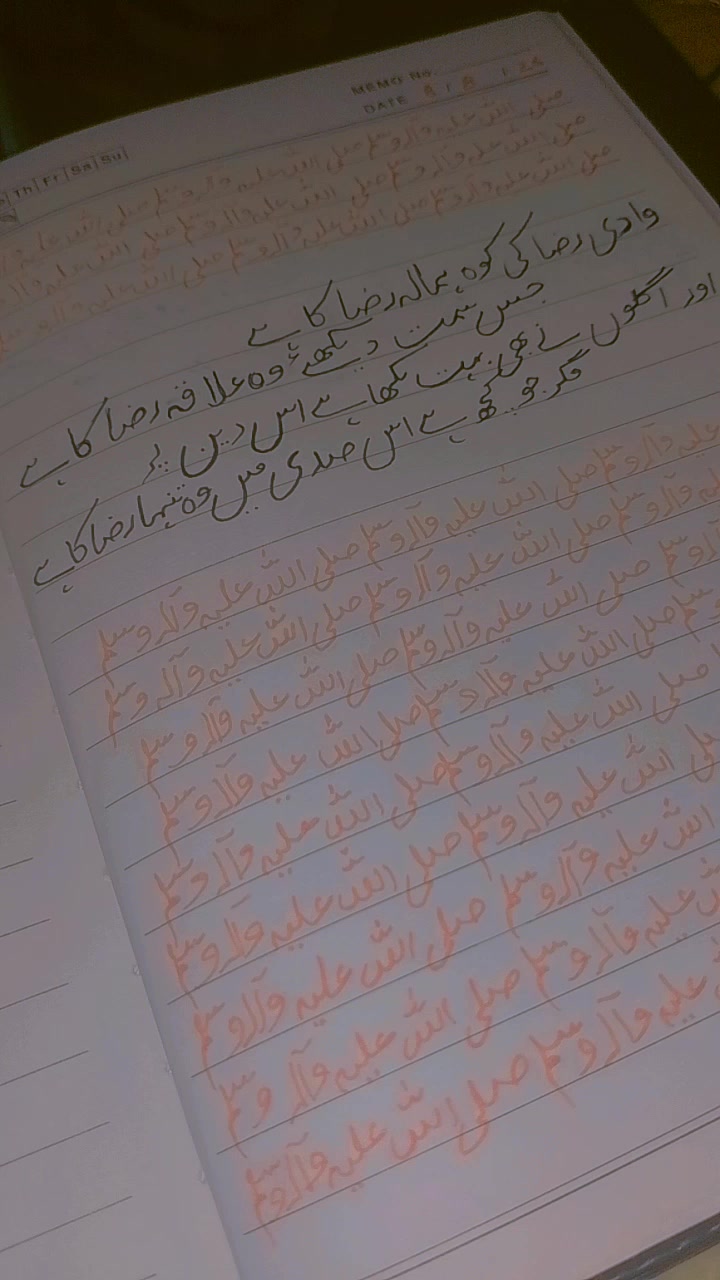 MEMO No.
DATE 8 / 8 / 24
Th Fr Sa Su
صلی اللہ علیہ وآلہ وسلم صلی اللہ علیہ وآلہ وسلم صلی اللہ علیہ و
صلی اللہ علیہ وآلہ وسلم صلی اللہ علیہ وآلہ وسلم صلی اللہ علیہ وآلہ
صلی اللہ علیہ وآلہ وسلم صلی اللہ علیہ وآلہ وسلم صلی اللہ علیہ وآلہ وسلم
وادی رضا کی کوہ ہمالہ رضا کا ہے
جس سمت دیکھئے وہ علاقہ رضا کا ہے
اور اگلوں نے بھی بہت لکھا ہے اس دین پر
مگر جو کچھ ہے اس صدی میں وہ تنہا رضا کا ہے
علیہ وآلہ وسلم صلی اللہ علیہ وآلہ وسلم صلی اللہ علیہ وآلہ وسلم
علیہ وآلہ وسلم صلی اللہ علیہ وآلہ وسلم صلی اللہ علیہ وآلہ وسلم
وآلہ وسلم صلی اللہ علیہ وآلہ وسلم صلی اللہ علیہ وآلہ وسلم
وسلم صلی اللہ علیہ وآلہ وسلم صلی اللہ علیہ وآلہ وسلم
صلی اللہ علیہ وآلہ وسلم صلی اللہ علیہ وآلہ وسلم
صلی اللہ علیہ وآلہ وسلم صلی اللہ علیہ وآلہ وسلم
اللہ علیہ وآلہ وسلم صلی اللہ علیہ وآلہ وسلم
اللہ علیہ وآلہ وسلم صلی اللہ علیہ وآلہ وسلم
علیہ وآلہ وسلم صلی اللہ علیہ وآلہ وسلم